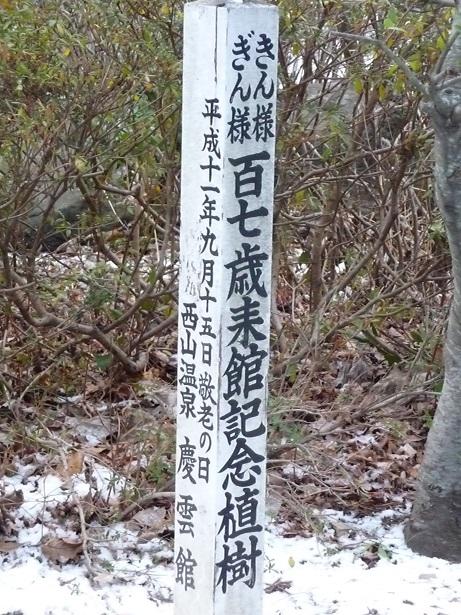 きん様
ぎん様
百七歳来館記念植樹
平成十一年九月十五日敬老の日
西山温泉 慶雲館